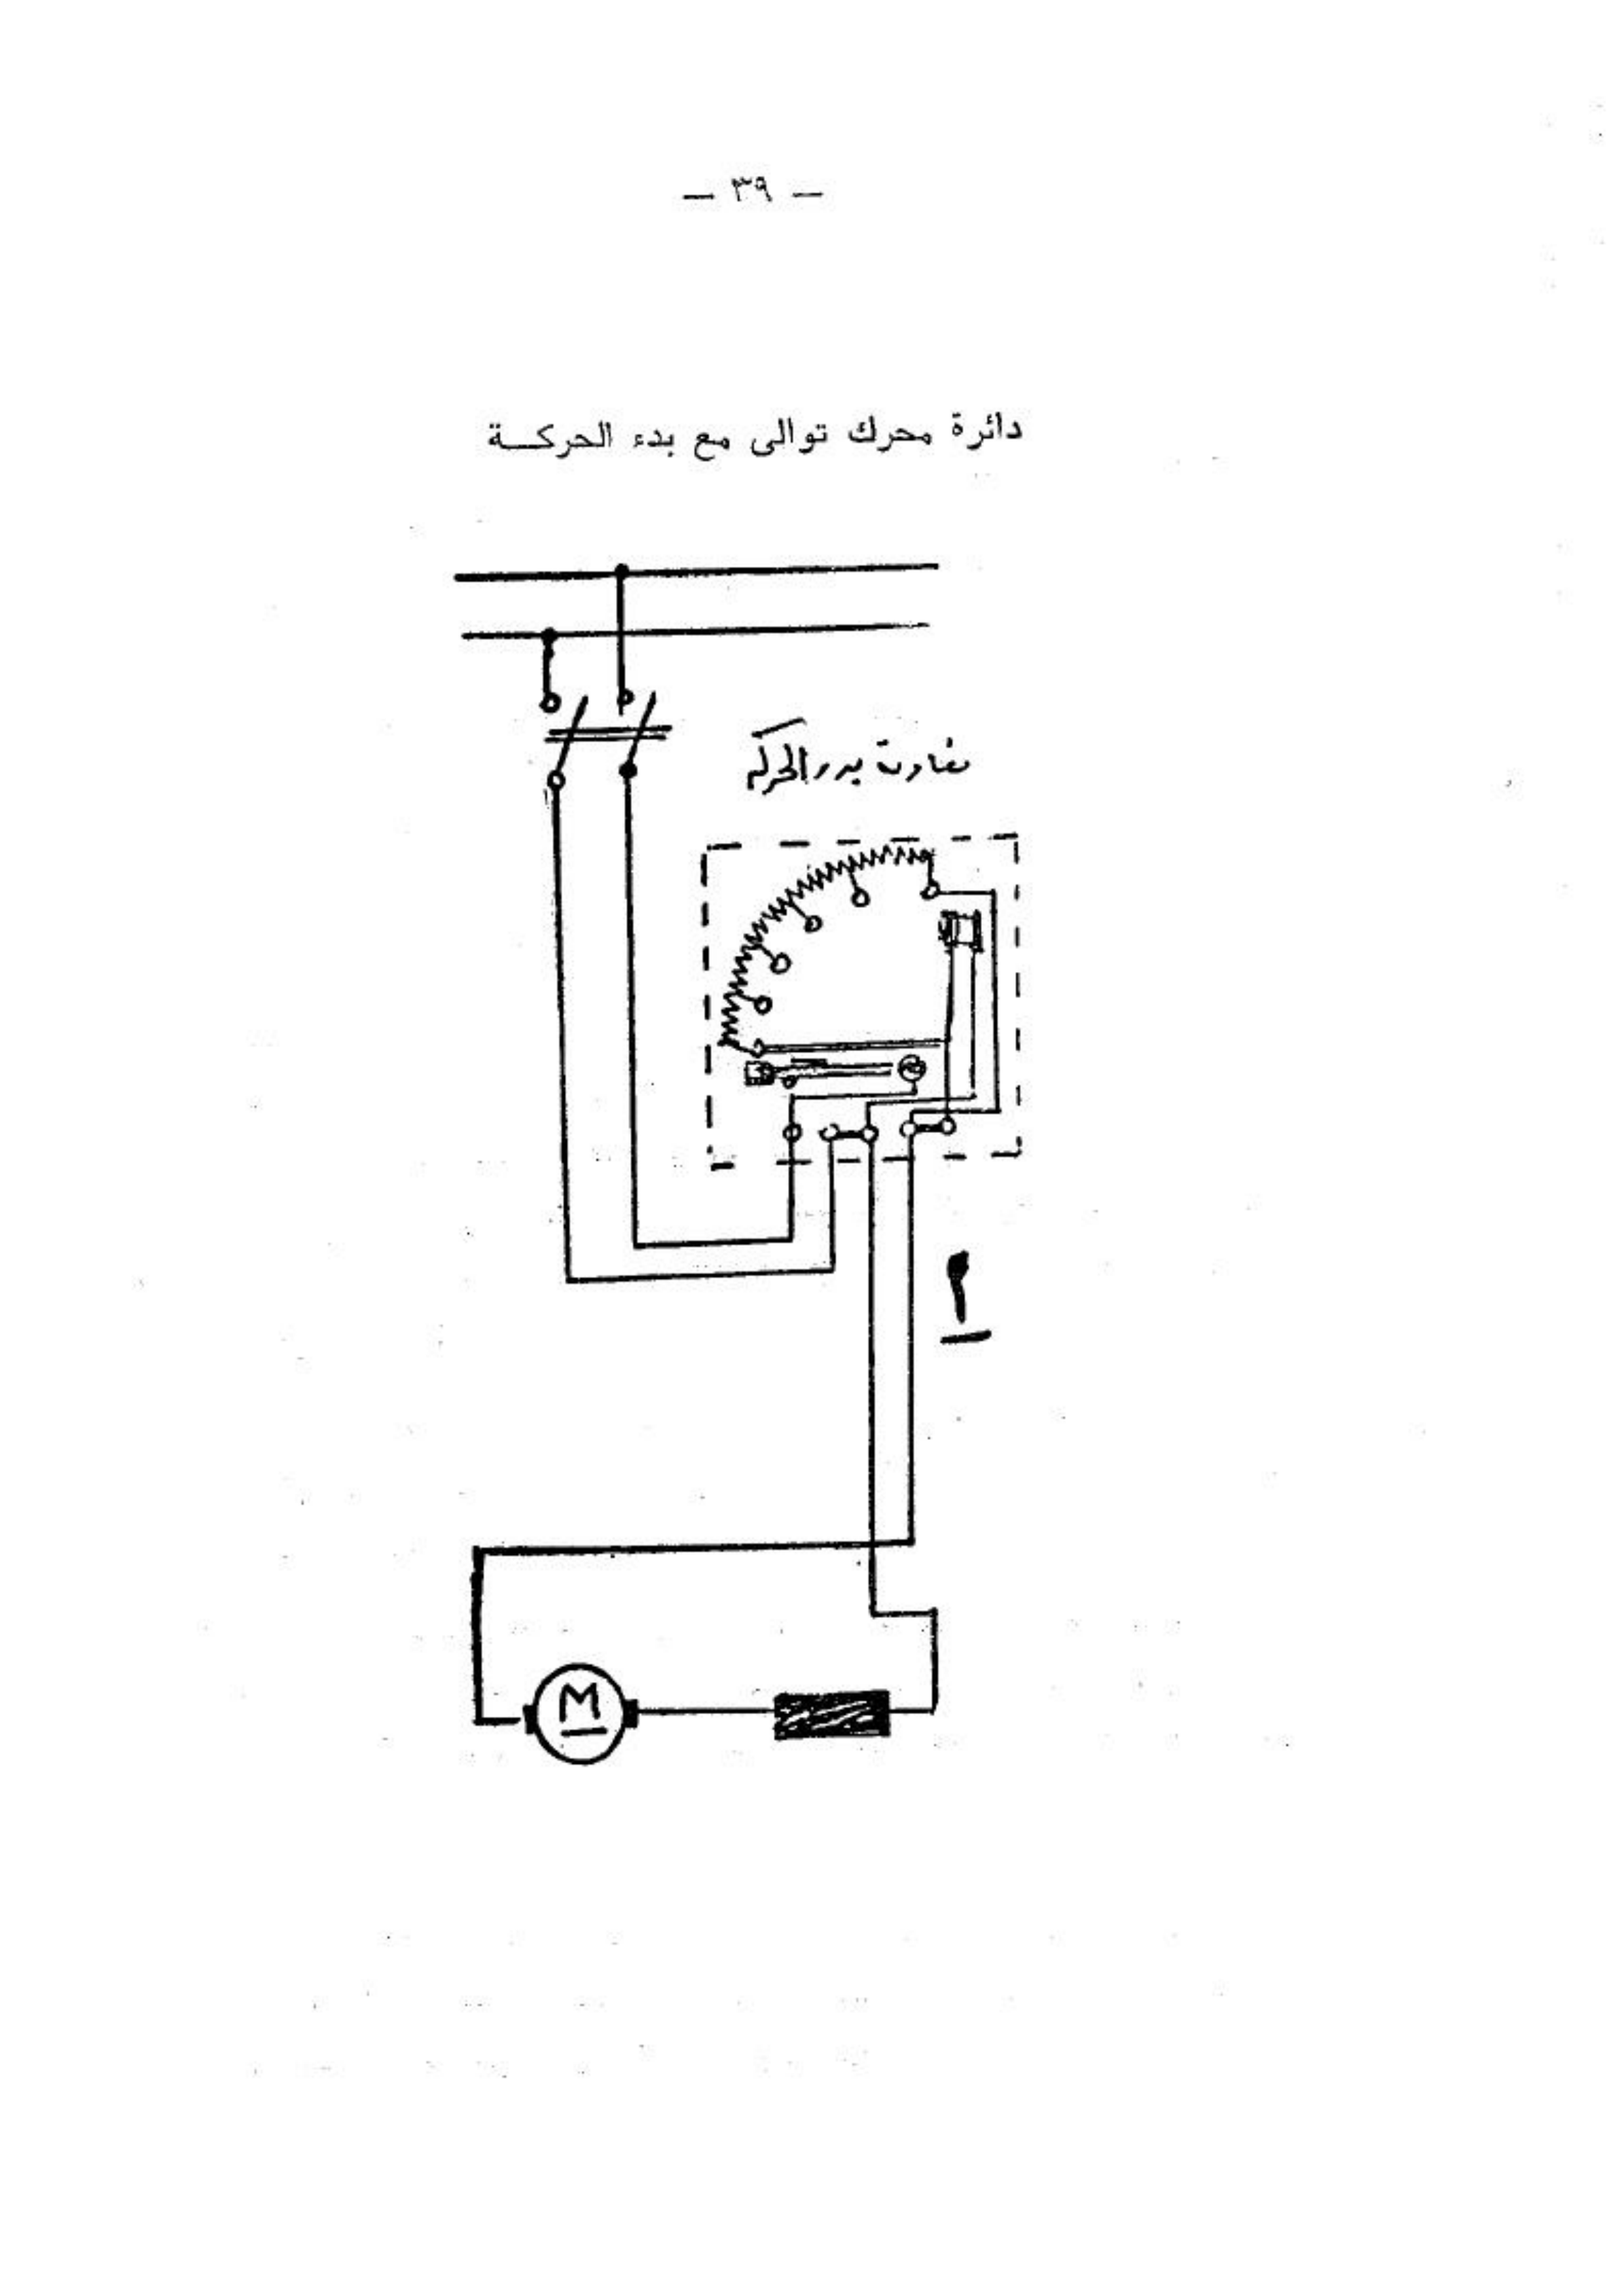 — ٣٩ —
دائرة محرك توالى مع بدء الحركــة
مقاومة بدء الحركه
M